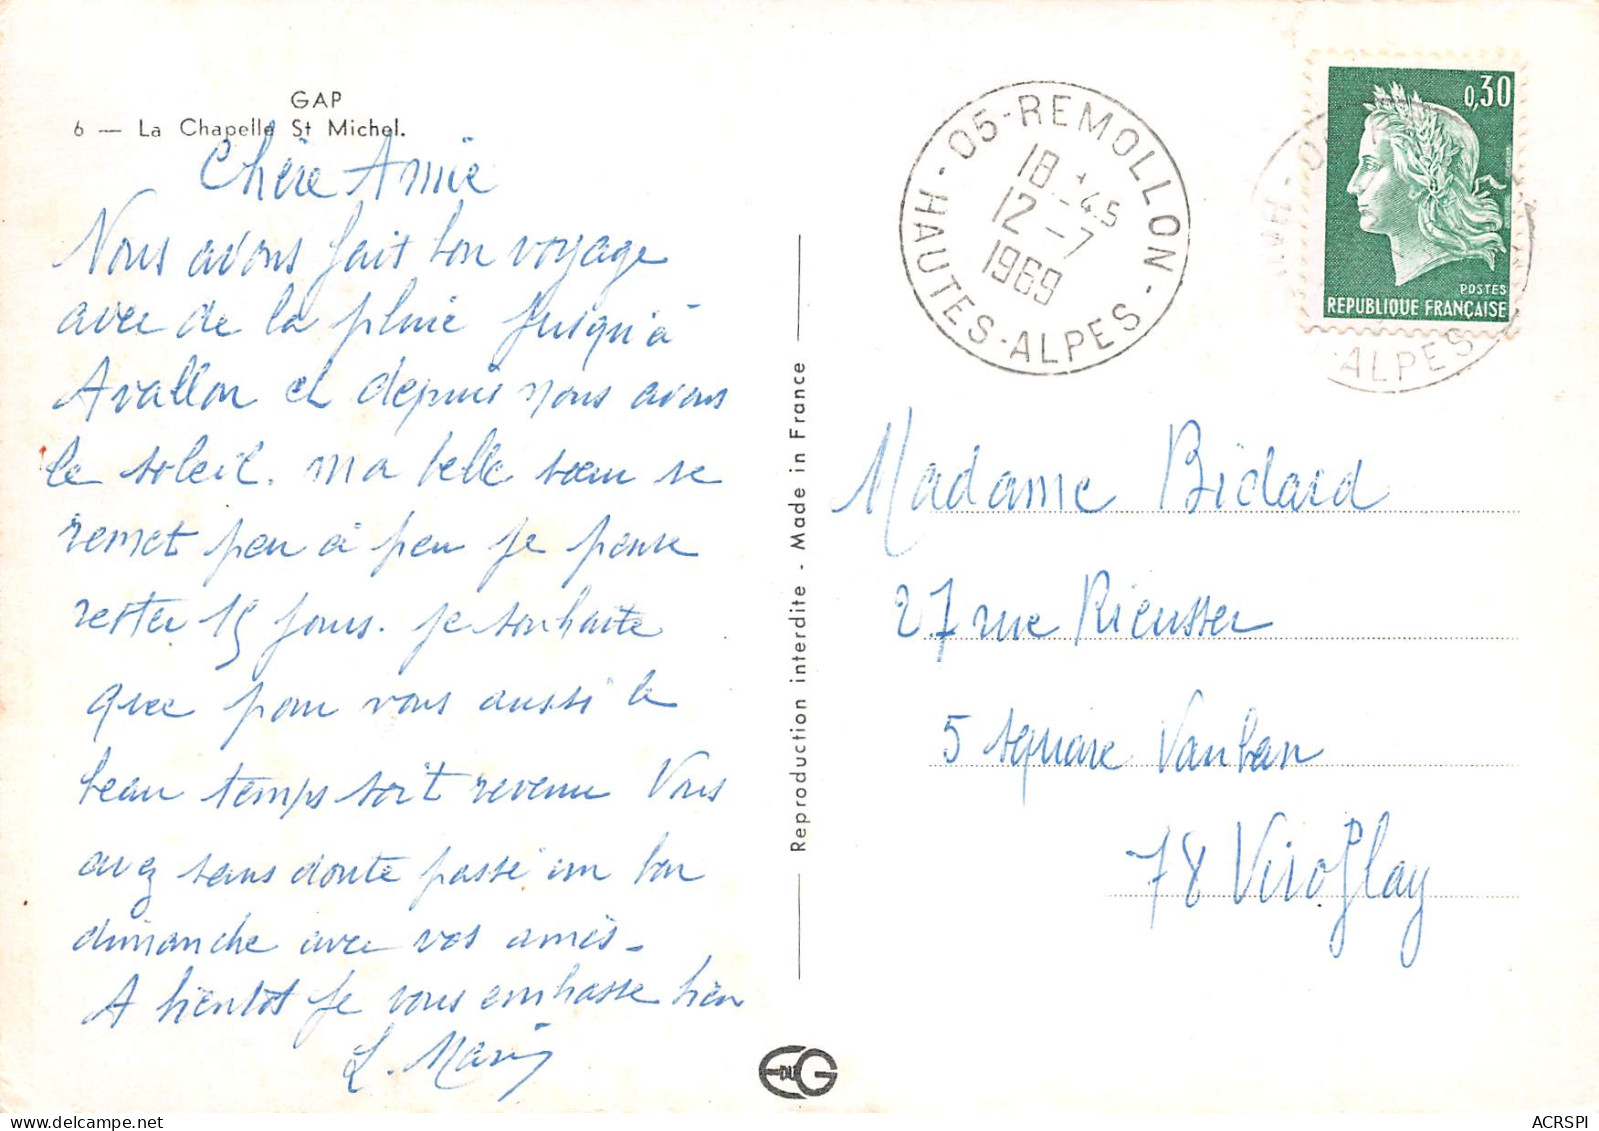 GAP
6 — La Chapelle St Michel.
Chère Amie
Nous avons fait bon voyage
avec de la pluie jusqu'à
Avallon et depuis nous avons
le soleil. Ma belle sœur se
remet peu à peu je pense
rester 15 jours. je souhaite
que pour vous aussi le
beau temps soit revenu Vous
avez sans doute passé un bon
dimanche avec vos amis -
A bientôt je vous embrasse bien
Reproduction interdite - Made in France
05-REMOLLON - HAUTES-ALPES -
18 45
12 - 7
1969
0,30
POSTES
REPUBLIQUE FRANÇAISE
ALPES
Madame Bidard
27 rue Rieussec
5 square Vauban
78 Viroflay
ACRSPI